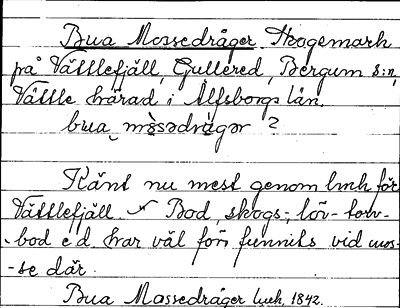 Bua Mossedråger Skogsmark
på Vättlefjäll, Gullered, Bergum s:n,
Vättle härad i Älfsborgs län.
bua mòsədràgər ?
Känt nu mest genom lmk för
Vättlefjäll. Bod, skogs-, löv- torv-
bod e d har väl förr funnits vid mos-
-se där.
Bua Mossedråger lmk, 1842.